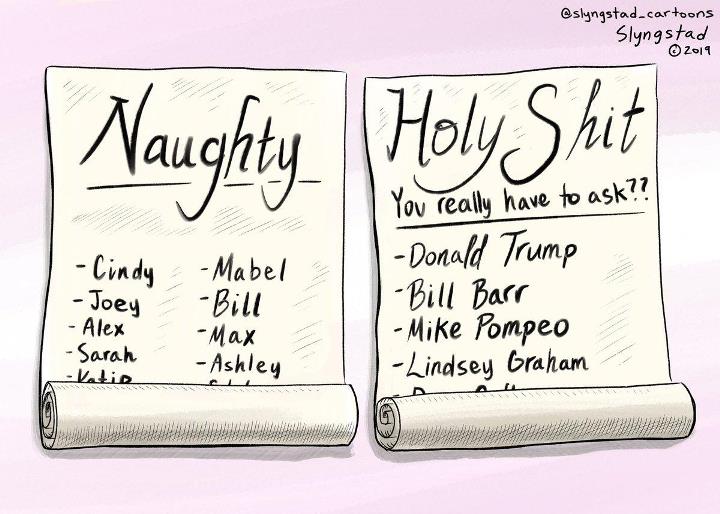 @slyngstad_cartoons
Slyngstad
©2019
Naughty
- Cindy
- Joey
- Alex
- Sarah
- Katie
- Mabel
- Bill
- Max
- Ashley
Holy Shit
You really have to ask??
- Donald Trump
- Bill Barr
- Mike Pompeo
- Lindsey Graham